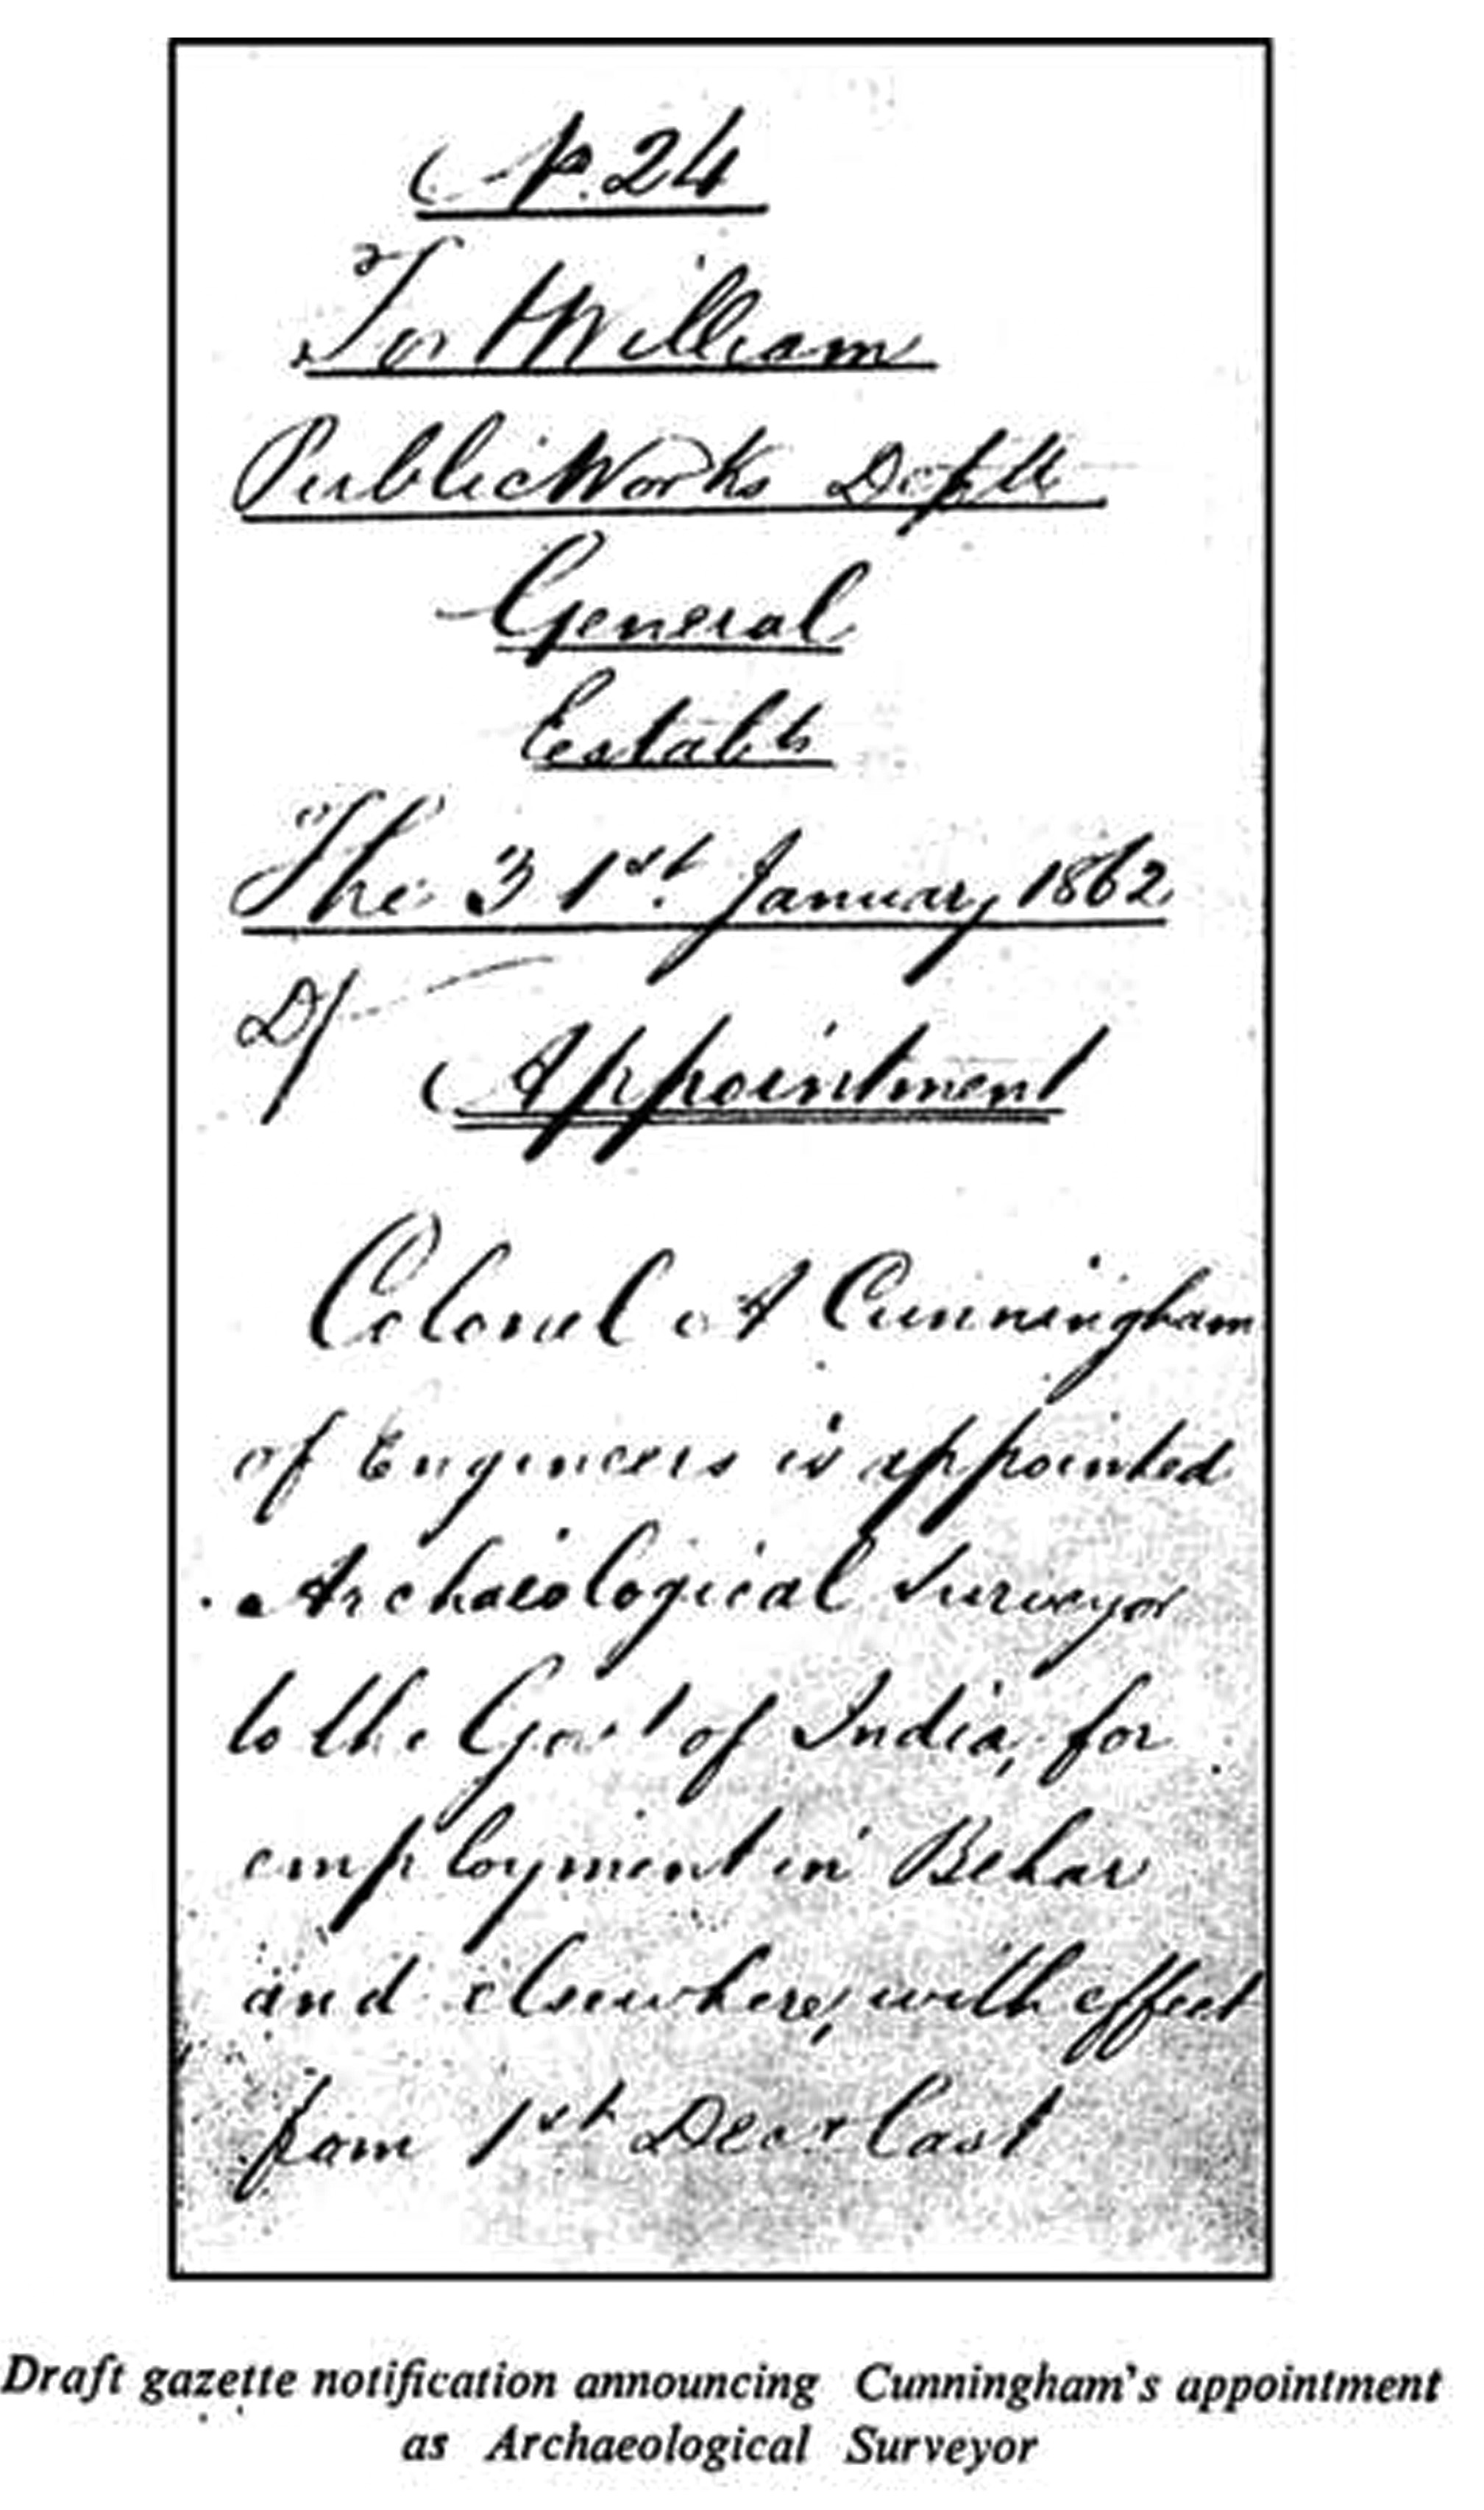 p. 24
Fort William
Public Works Deptt
General
Establt
The 31st January 1862
D/
Appointment
Colonel A Cunningham
of Engineers is appointed
Archaeological Surveyor
to the Govt of India, for
employment in Behar
and elsewhere, with effect
from 1st Decr last
Draft gazette notification announcing Cunningham's appointment
as Archaeological Surveyor